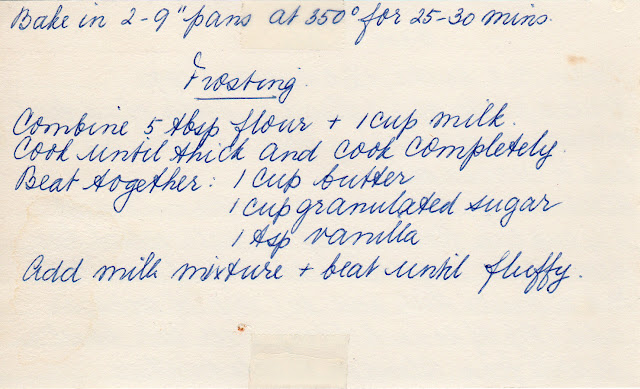 Bake in 2-9" pans at 350° for 25-30 mins.
Frosting
Combine 5 tbsp flour + 1 cup milk.
Cook until thick and cook completely.
Beat together: 1 cup butter
1 cup granulated sugar
1 tsp vanilla
Add milk mixture + beat until fluffy.